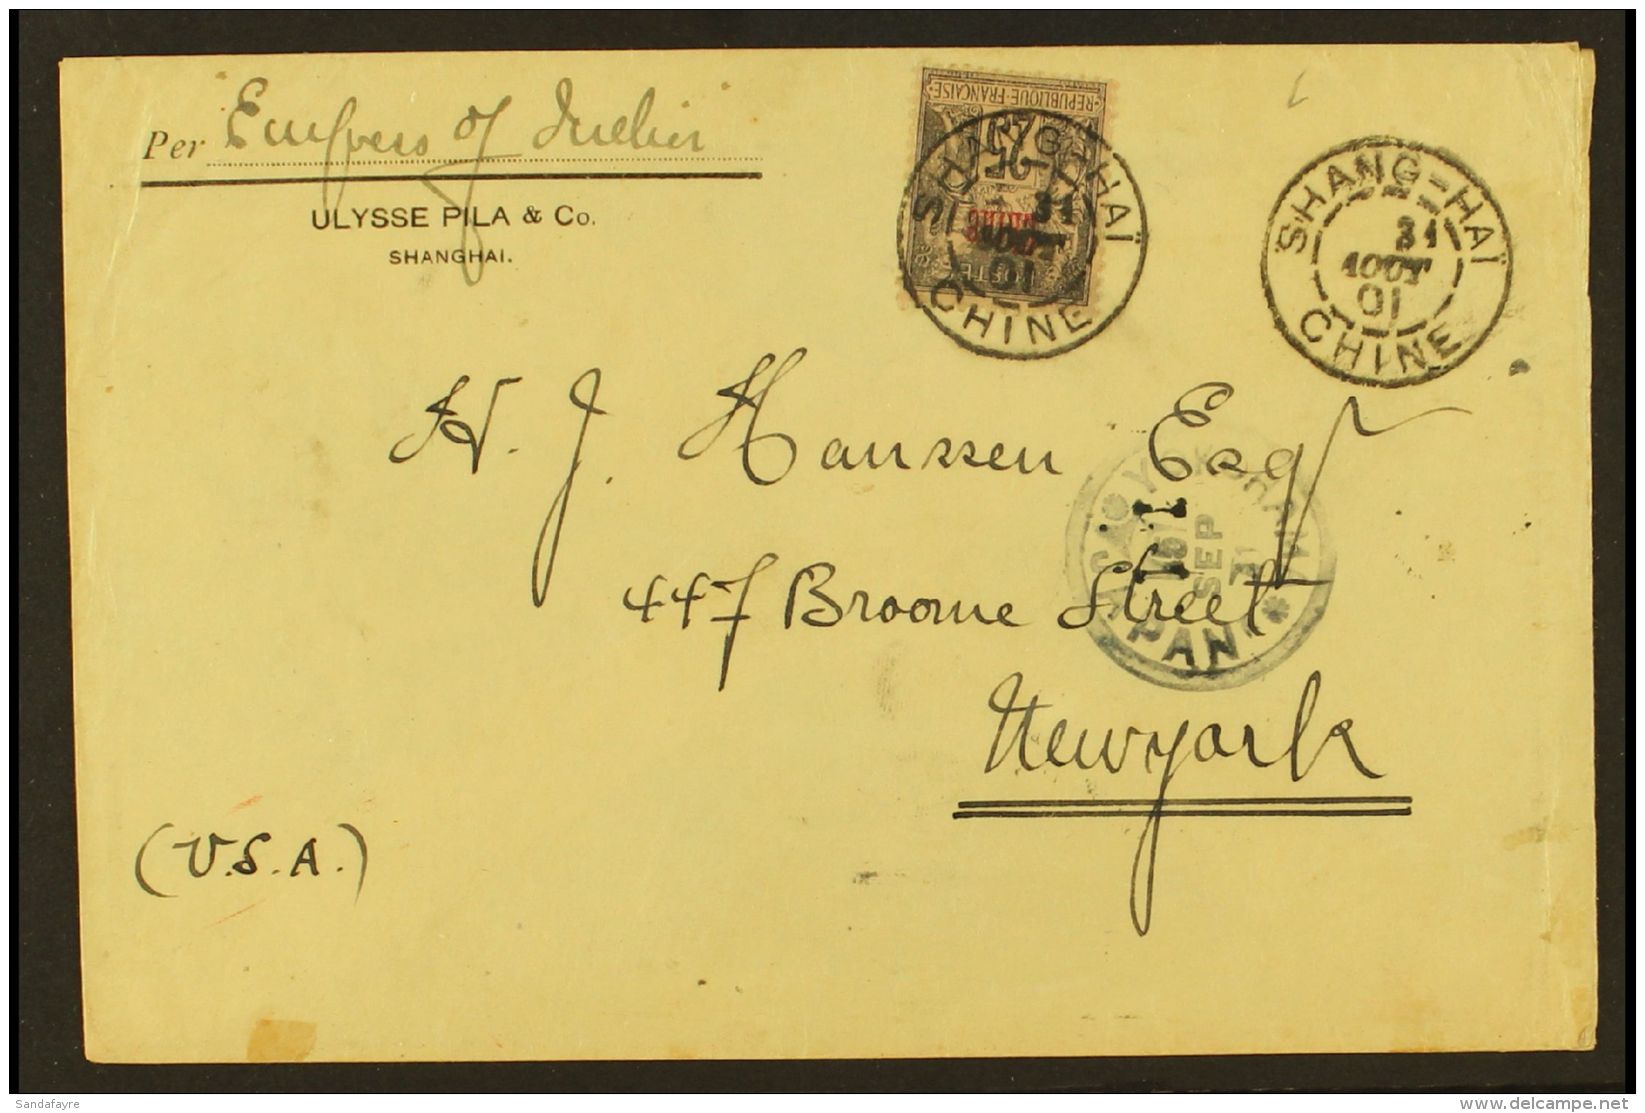 Per Empress of India
ULYSSE PILA & Co.
SHANGHAI.
REPUBLIQUE FRANÇAISE
Chine
SHANG-HAÏ
31
AOUT
01
CHINE
SHANG-HAÏ
31
AOUT
01
CHINE
H. J. Hanssen Esqr
YOKOHAMA
SEP
JAPAN
447 Broome Street
Newyork
(U.S.A.)
Sandafayre
www.delcampe.net